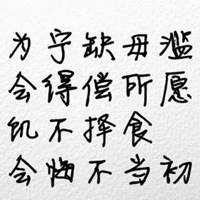 为宁缺毋滥
会得偿所愿
饥不择食
会悔不当初